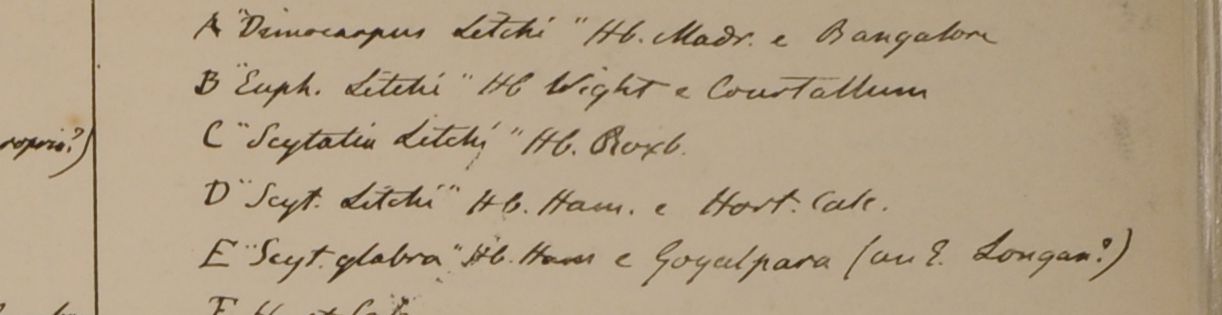 A "Dimocarpus Litchi" Hb. Madr. e Bangalore
B "Euph. Litchi" Hb Wight e Courtallum
ropris?)
C "Scytalia Litchi" Hb. Roxb.
D "Scyt. Litchi" Hb. Ham. e Hort. Calc.
E "Scyt. glabra" Hb. Ham e Goyalpara (an E. Longan?)